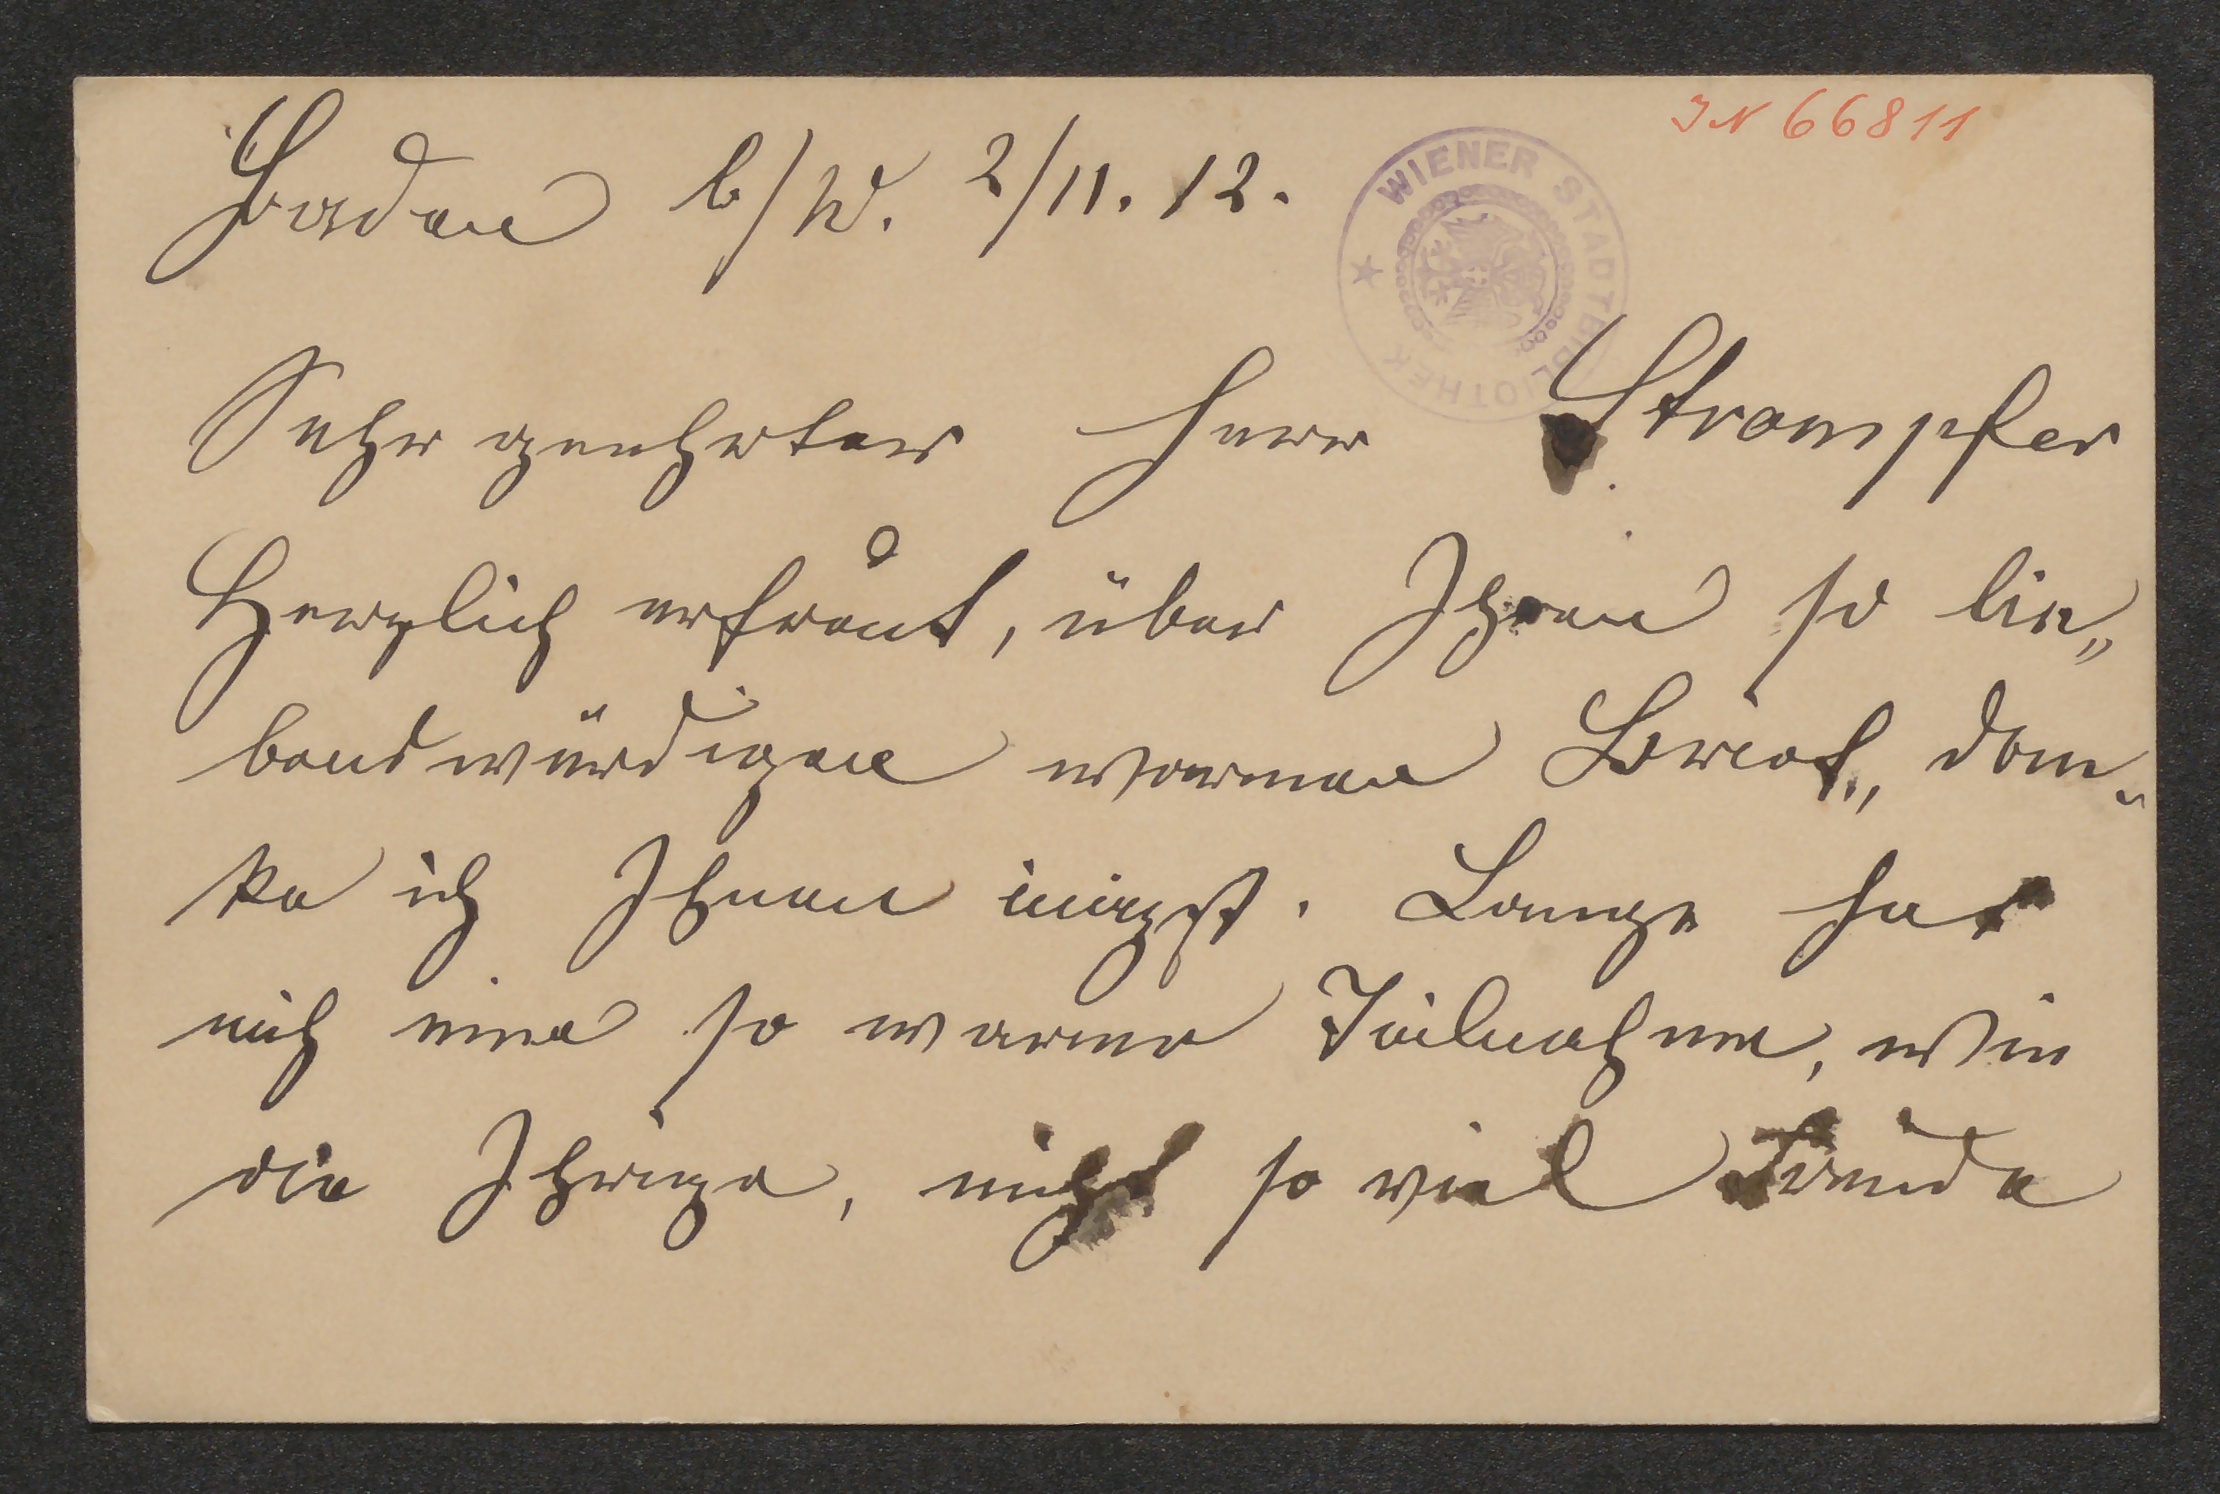 JN 66811
WIENER STADTBIBLIOTHEK
Baden b/W. 2/11. 12.
Sehr geehrter Herr Strampfer
Herzlich erfreut, über Ihren so lie„
benswürdigen warmen Brief, dan„
ke ich Ihnen innigst. Lange hat
mich eine so warme Teilnahme, wie
die Ihrige, nicht so viel Freude